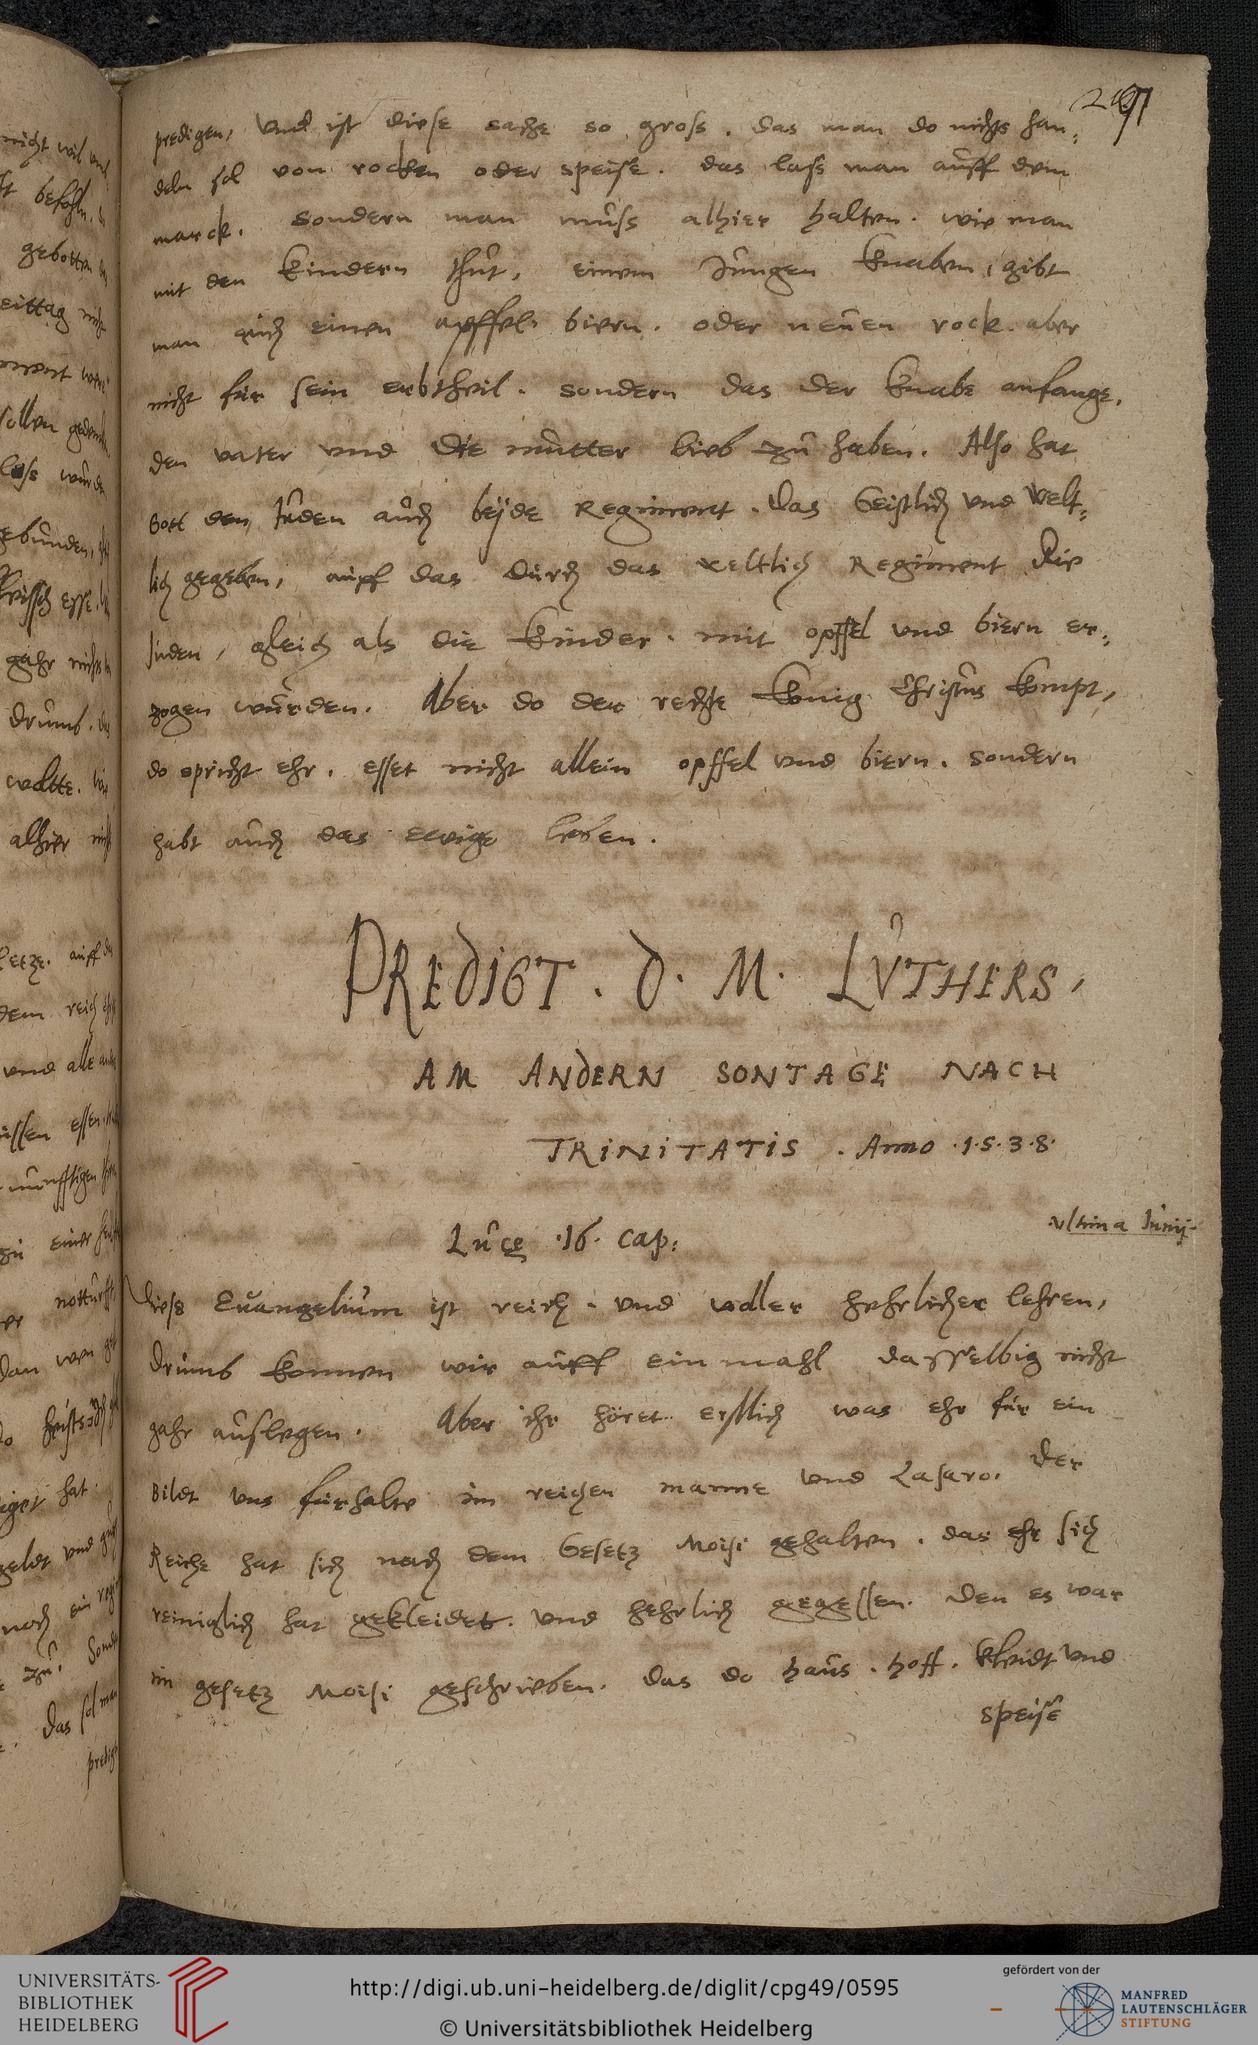 291
predigen, Und ist diese sache so gross. das man do nichts han-
deln sol von rocken oder speise. das lass man auff dem
marck. sondern man muss alhier halten. wie man
mit den kindern thut, einem Jungen knaben, gibt
man auch einen apffel, biern. oder neuen rock. aber
nicht für sein erbtheil. sondern das der knabe anfange.
den vater vnd die mutter lieb zu haben. Also hat
Gott den Juden auch beyde Regiment. das Geistlich vnd Welt-
lich gegeben, auff das durch das weltlich Regiment die
Juden, gleich als die kinder. mit opffel vnd biern er-
zogen wurden. Aber do der rechte konig Christus kompt,
do spricht ehr. esset nicht allein opffel vnd biern. sondern
habt auch das ewige leben.
PREDIGT. D. M. LVTHERS,
AM ANDERN SONTAGE NACH
TRINITATIS. Anno .1.5.3.8.
Luce .16. cap:
vltima Junij
Dies Euangelium ist reich. vnd voller hehrlicher lehren,
drumb konnen wir auff ein mahl dasselbig nicht
gahr auslegen. Aber ihr höret erstlich was ehr für ein
Bildt vns fürhalte im reichen manne vnd Lasaro. Der
Reiche hat sich nach dem Gesetz Moisi gehalten. das ehr sich
reiniglich hat gekleidet. vnd hehrlich gegessen. den es war
im gesetz Moisi geschrieben. das do haus. hoff. kleidt vnd
speise
UNIVERSITÄTS-
BIBLIOTHEK
HEIDELBERG
http://digi.ub.uni-heidelberg.de/diglit/cpg49/0595
© Universitätsbibliothek Heidelberg
gefördert von der
MANFRED
LAUTENSCHLÄGER
STIFTUNG